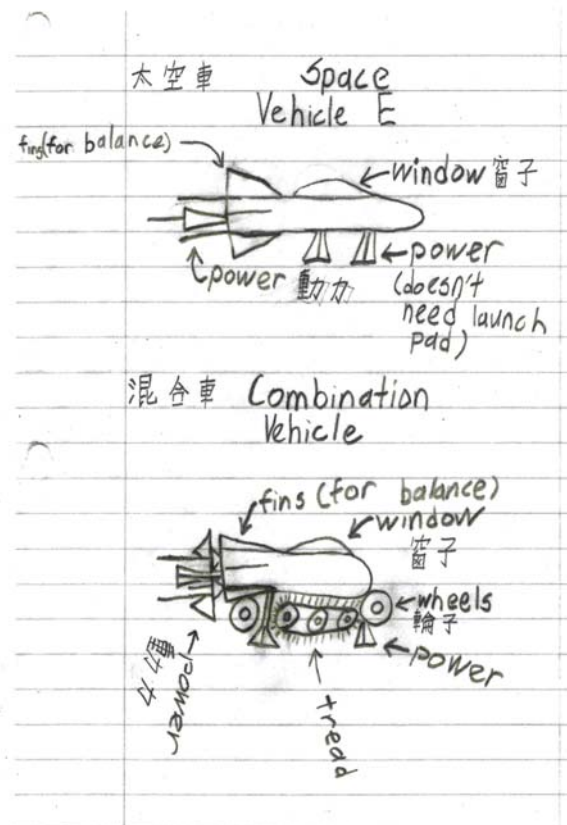 太空車 Space
Vehicle E
fins(for balance)
window 窗子
power
動力
power
(doesn't
need launch
pad)
混合車 Combination
Vehicle
fins (for balance)
window
窗子
wheels
輪子
power
動力
power
tread